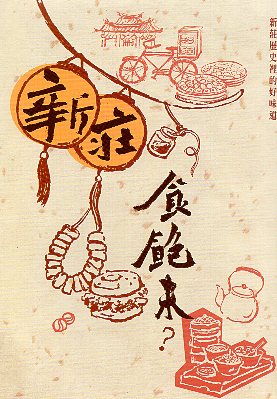 新莊歷史裡的好味道
新莊
食飽未?